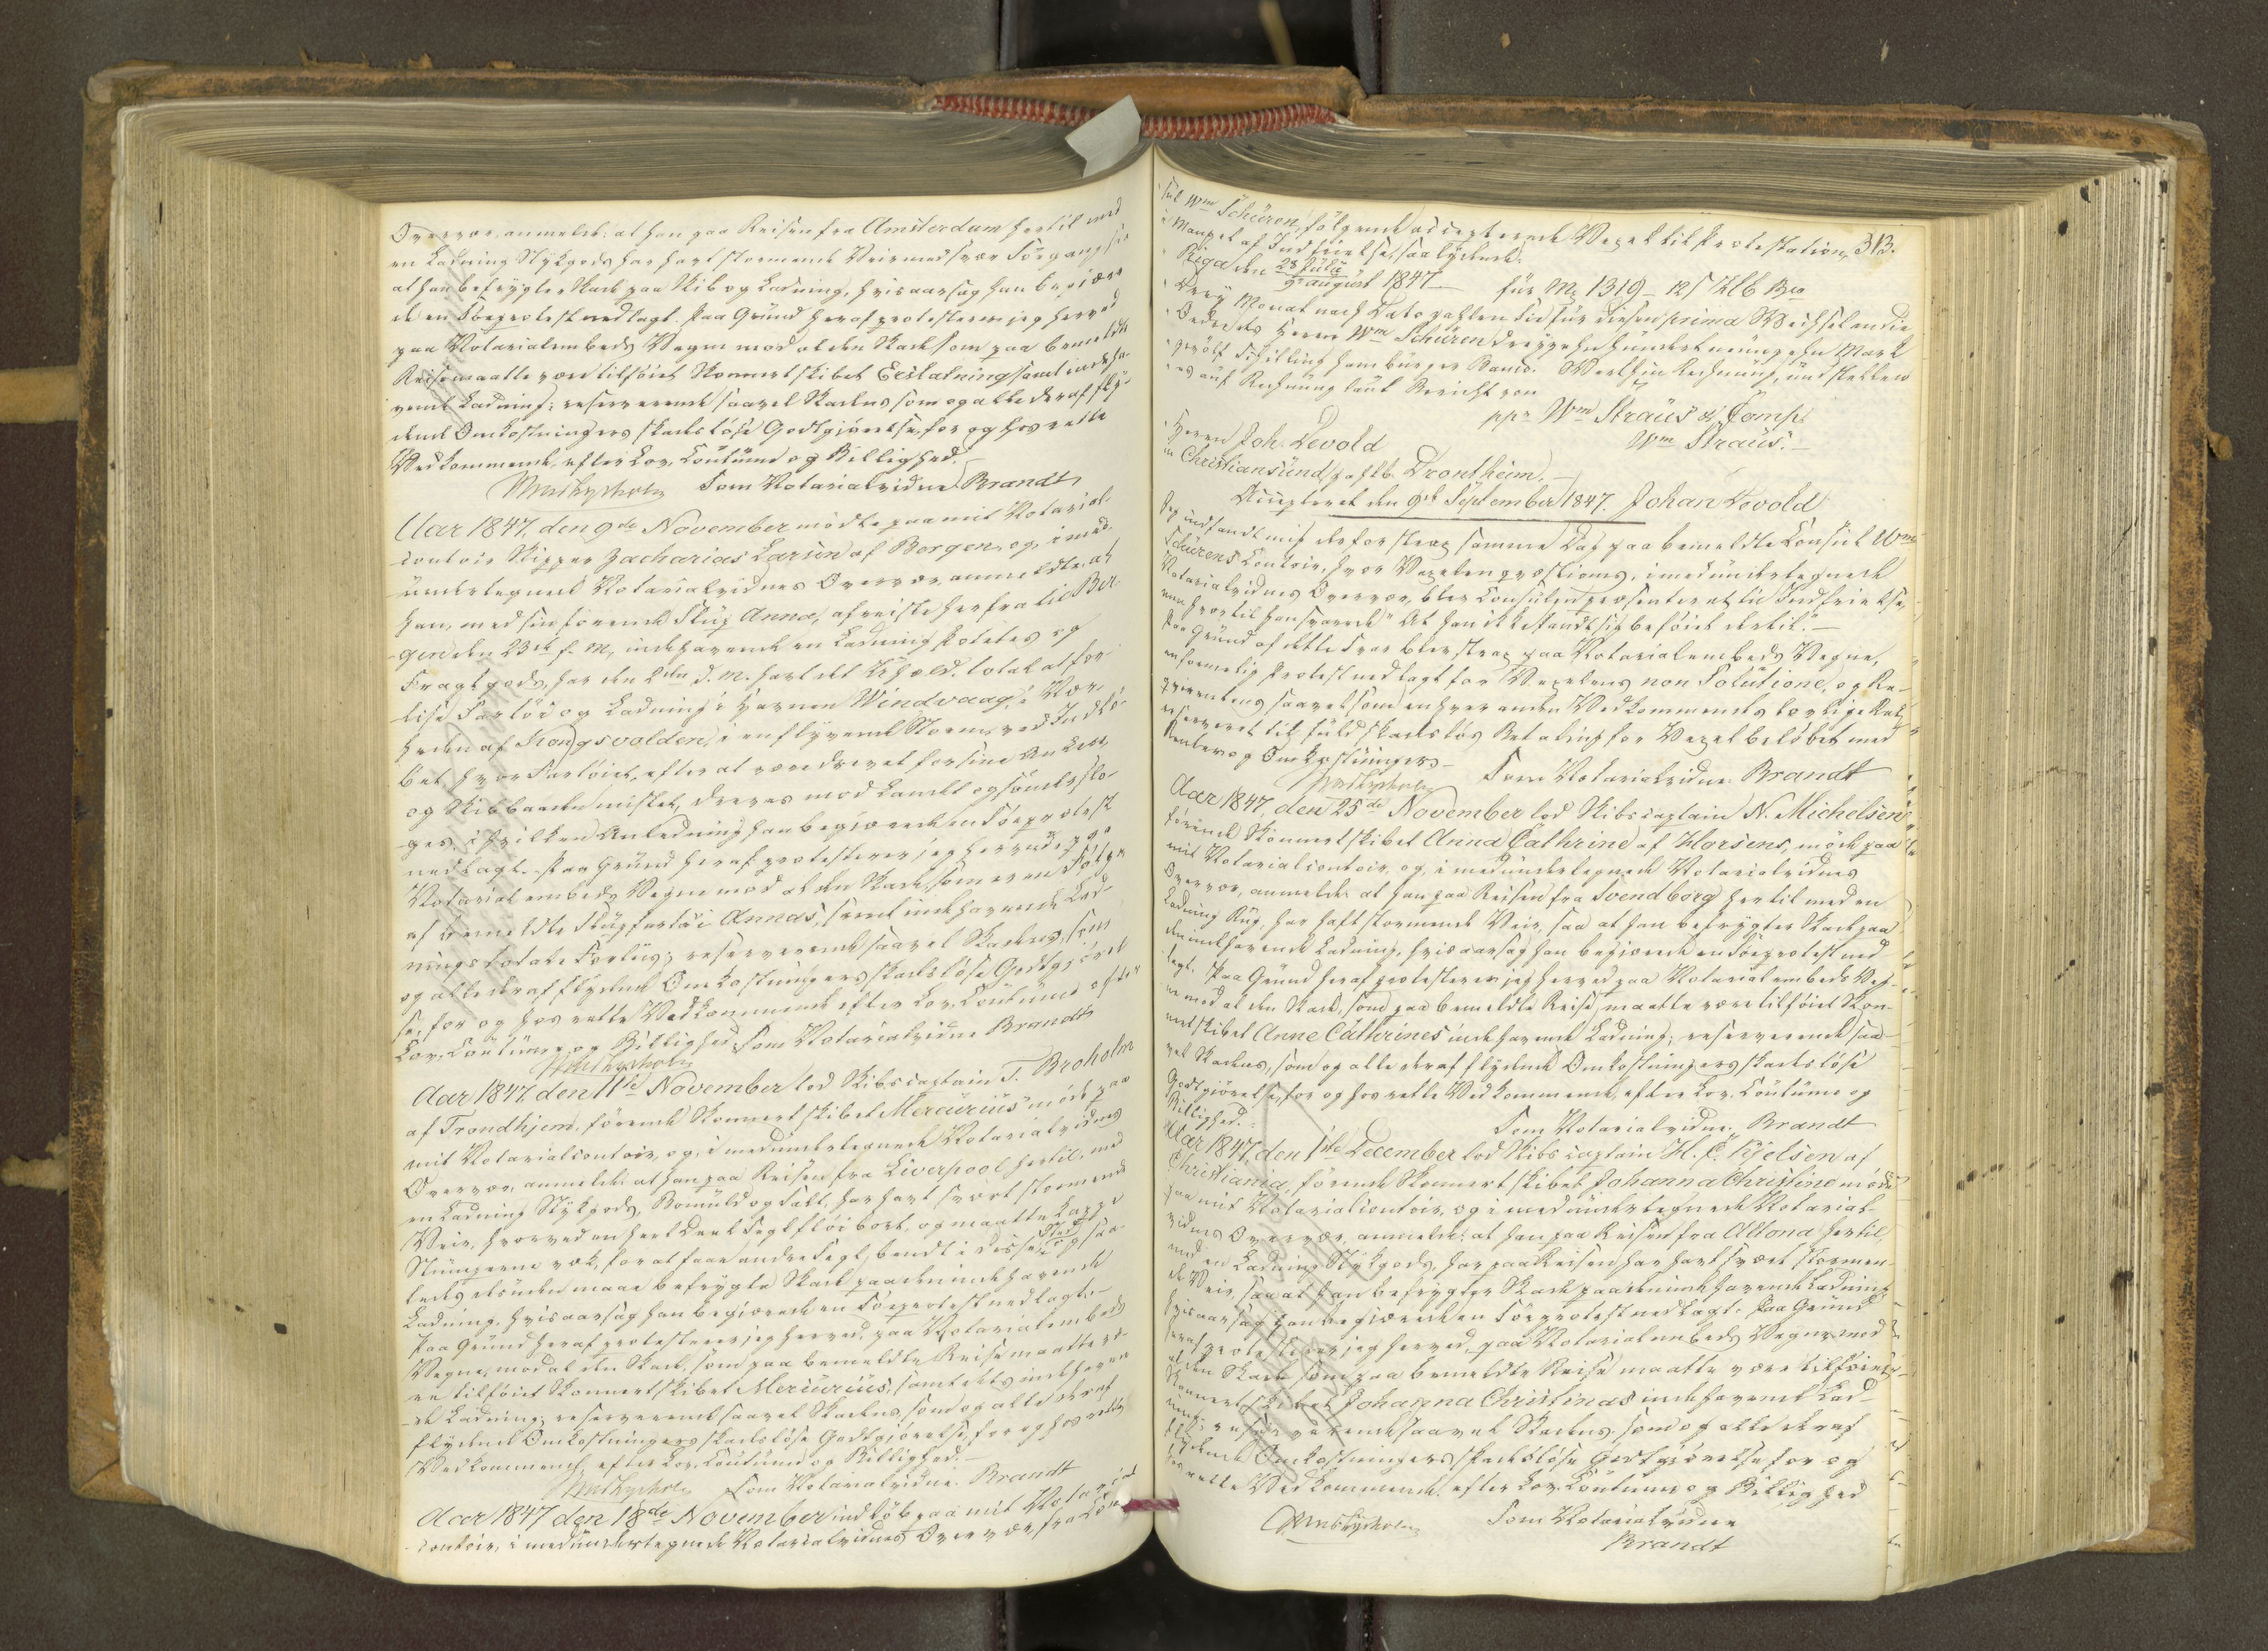 Overvær, anmeldte: at han paa Reisen fra Amsterdam hertil med
en Ladning Stykgods har havt stormende Veir med svær Søegang, saa
at han befrygter Skade paa Skib og Ladning, hvisaarsag han begjære-
de en Søeprotest nedlagt. Paa Grund heraf protesterer jeg herved
paa Notarialembeds Vegne mod al den Skade som paa bemeldte
Reise maatte være tilføiet Skonnertskibet samt indeha-
vende Ladning; reserverende saavel Skadens som og alle deraf fly-
dende Omkostningers skadesløse Godtgjørelse, for og hos rette
Vedkommende, efter Lov, Coutume og Billighed.
Som Notarialvidne Brandt
Aar 1847, den 9de November mødte paa mit Notarial-
contoir Skipper Zacharias Larsen af Bergen, og, i med-
undertegnede Notarialvidnes Overvær, anmeldte: at
han, med sin førende Slup Anna, afreiste herfra til Ber-
gen den 23de f. M., indehavende en Ladning Poteter og
Fragtgods, har den 2den d. M. havt det Uheld, total at for-
lise Fartøi og Ladning i Havnen Windvaag, i Nær-
heden af Kongsvolden, i en flyvende Storm, ved Indlø-
bet, hvor Fartøiet, efter at være drevet for sine Anker,
og Skibbaaden mistet, dreves mod Landet og sønderslo-
ges, i hvilken Anledning han begjærede en Søeprotest
nedlagt. Paa Grund heraf protesterer jeg herved paa
Notarialembeds Vegne mod al den Skade, som er en Følge
af bemeldte Slupfartøi Annas, samt indehavende Lad-
nings totale Forliis; reserverende saavel Skadens, som
og alle deraf flydende Omkostningers skadesløse Godtgjørel-
se, for og hos rette Vedkommende efter Lov, Coutume efter
Lov, Coutume og Billighed. Som Notarialvidne Brandt
Aar 1847, den 11te November lod Skibscaptain T. Broholm
af Trondhjem, førende Skonnertskibet Mercurius møde paa
mit Notarialcontoir, og, i medundertegnede Notarialvidnes
Overvær, anmelde: at han paa Reisen fra Liverpool hertil, med
en Ladning Stykgods, Bomuld og Salt, har havt svært stormende
Veir, hvorved en heel Deel Seil fløi bort, og maatte kappe
Stumperne væk, for at faae andre Seil, bendt i disses Sted og saa-
ledes desuden maae befrygte Skade paa den indehavende
Ladning, hvisaarsag han begjærede en Søeprotest nedlagt.
Paa Grund heraf protesterer jeg herved, paa Notarialembeds
Vegne, mod al den Skade, som paa bemeldte Reise maatte væ-
re tilføiet Skonnertskibet Mercurius, samt dets indehaven-
de Ladning; reserverende saavel Skadens, som og alle deraf
flydende Omkostningers skadesløse Godtgjørelse, for og hos rette
Vedkommende, efter Lov, Coutume og Billighed.
Som Notarialvidne Brandt
Aar 1847 den 18de November indløb paa mit Notarial-
contoir, i medundertegnede Notarialvidnes Overvær, fra Con-
sul Wm Schüren, følgende accepterede Vexel til Protestation, 313.
i Mangel af Indfrielse, saalydende:
Riga den 28 Juli / 9 August 1847 für M 1319 - 12 S Hb Bco
Drey Monat nach Dato zahlen Sie für diesen prima Wechsel an die
Ordre des Herrn Wm Schüren dreyzehnhundert neunzehn Mark
zwölf Schilling Hamburger Banco. Werth in Rechnung, und stellen
es auf Rechnung laut Bericht von
ppr Wm Straus & Comp.
Wm Straus.
Herrn Joh. Devold
in Christiansund, p. Drontheim.
Accepteret den 9de September 1847. Johan Devold
Jeg indfandt mig derfor strax samme Dag paa bemeldte Consul Wm
Schürens Contoir, hvor Vexelen præstions, i medundertegnede
Notarialvidnes Overvær, blev Consulen præsenteret til Indfrielse,
men hvortil han svarede "At han ikke fandt sig beføiet dertil."
Paa Grund af dette Svar blev strax paa Notarialembeds Vegne,
en formelig Protest nedlagt for Vexelens non Solutione, og Re-
qvirentens saavelsom enhver anden Vedkommendes lovlige Ret
reserveret til fuld skadesløs Betaling for Vexelbeløbet med
Renter og Omkostninger.
Som Notarialvidne Brandt
Aar 1847, den 25de November lod Skibscaptain N. Michelsen
førende Skonnertskibet Anna Cathrine af Horsens, møde paa
mit Notarialcontoir, og, i medundertegnede Notarialvidnes
Overvær, anmelde: at han paa Reisen fra Svendborg hertil med en
Ladning Rug, har haft stormende Veir, saa at han befrygter Skade paa
den indehavende Ladning, hvisaarsag han begjærede en Søeprotest ned-
lagt. Paa Grund heraf protesterer jeg herved paa Notarialembeds Veg-
ne mod al den Skade, som paa bemeldte Reise maatte være tilføiet Skon-
nertskibet Anne Cathrines indehavende Ladning; reserverende saa-
vel Skadens, som og alle deraf flydende Omkostningers skadesløse
Godtgjørelse, for og hos rette Vedkommende, efter Lov, Coutume og
Billighed.
Som Notarialvidne. Brandt
Aar 1847, den 1ste December lod Skibscaptain H. C. Nielsen af
Christiania, førende Skonnertskibet Johanna Christine møde
paa mit Notarialcontoir, og i medundertegnede Notarial-
vidnes Overvær, anmelde: at han paa Reisen fra Altona hertil,
med en Ladning Stykgods, har paa Reisen har havt svært stormen-
de Veir, saa at han befrygter Skade paa den indehavende Ladning
hvisaarsag han begjærede en Søeprotest nedlagt. Paa Grund
heraf protesterer jeg herved, paa Notarialembeds Vegne, mod
al den Skade som paa bemeldte Reise maatte være tilføiet
Skonnertskibet Johanna Christinas indehavende Lad-
ning; reserverende saavel Skadens som og alle deraf
flydende Omkostningers skadesløse Godtgjørelse for og
hos rette Vedkommende, efter Lov, Coutume og Billighed
Som Notarialvidne
Brandt